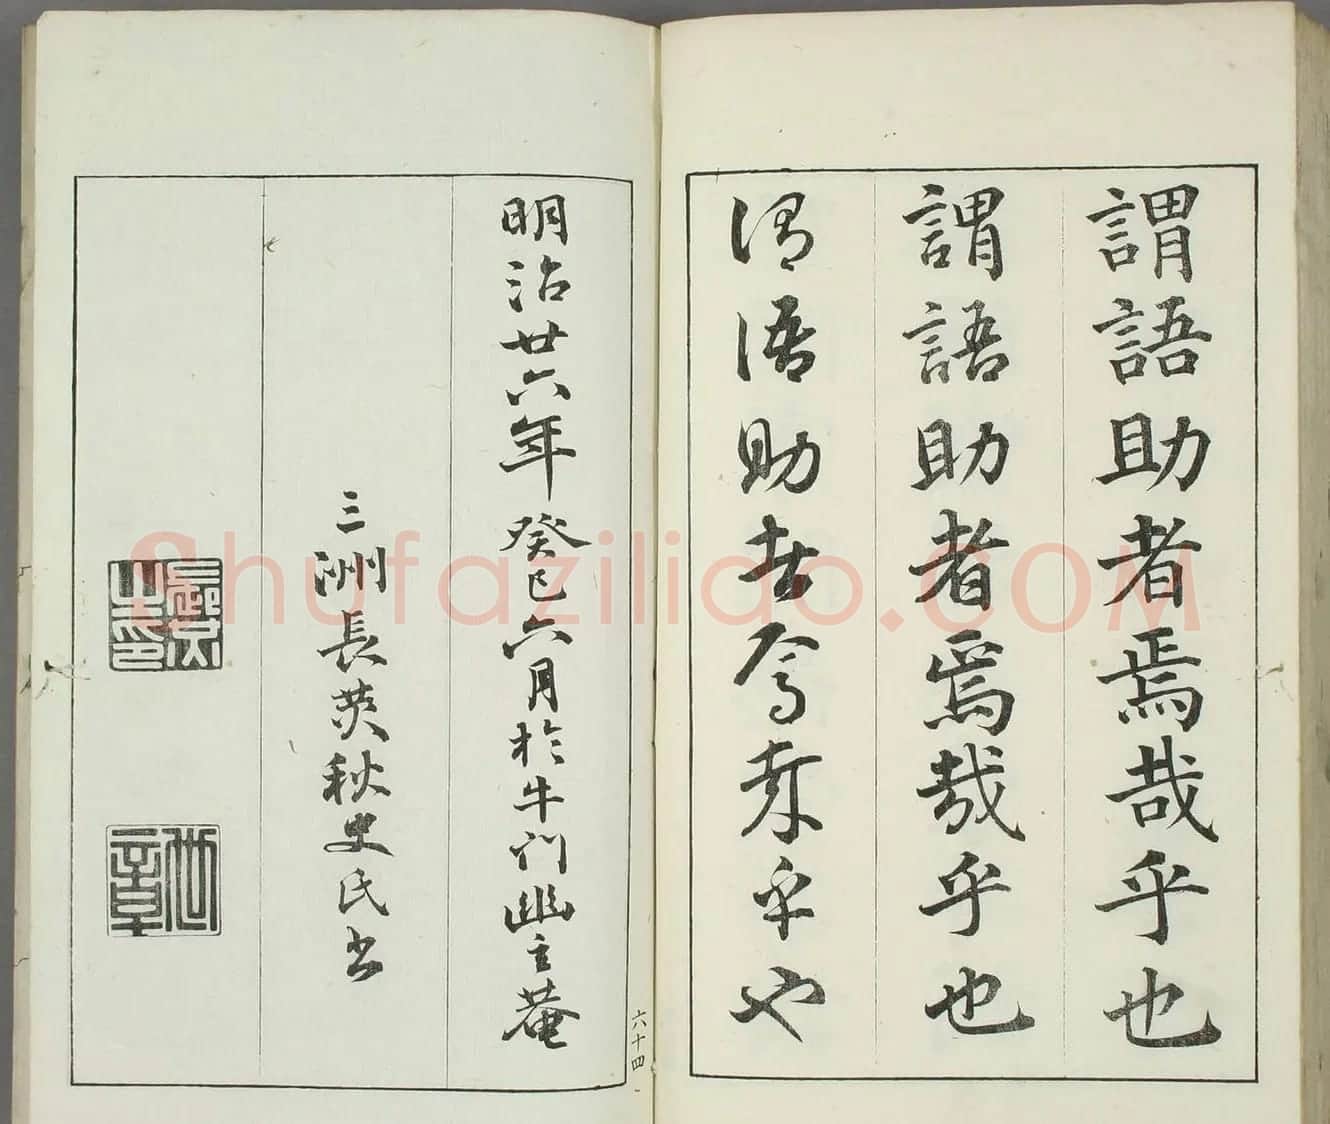 謂語助者焉哉乎也
謂語助者焉哉乎也
謂語助者焉哉乎也
明治廿六年癸巳六月於牛門幽主菴
三洲長炗秋史氏書
六十四
Shufazilido.COM